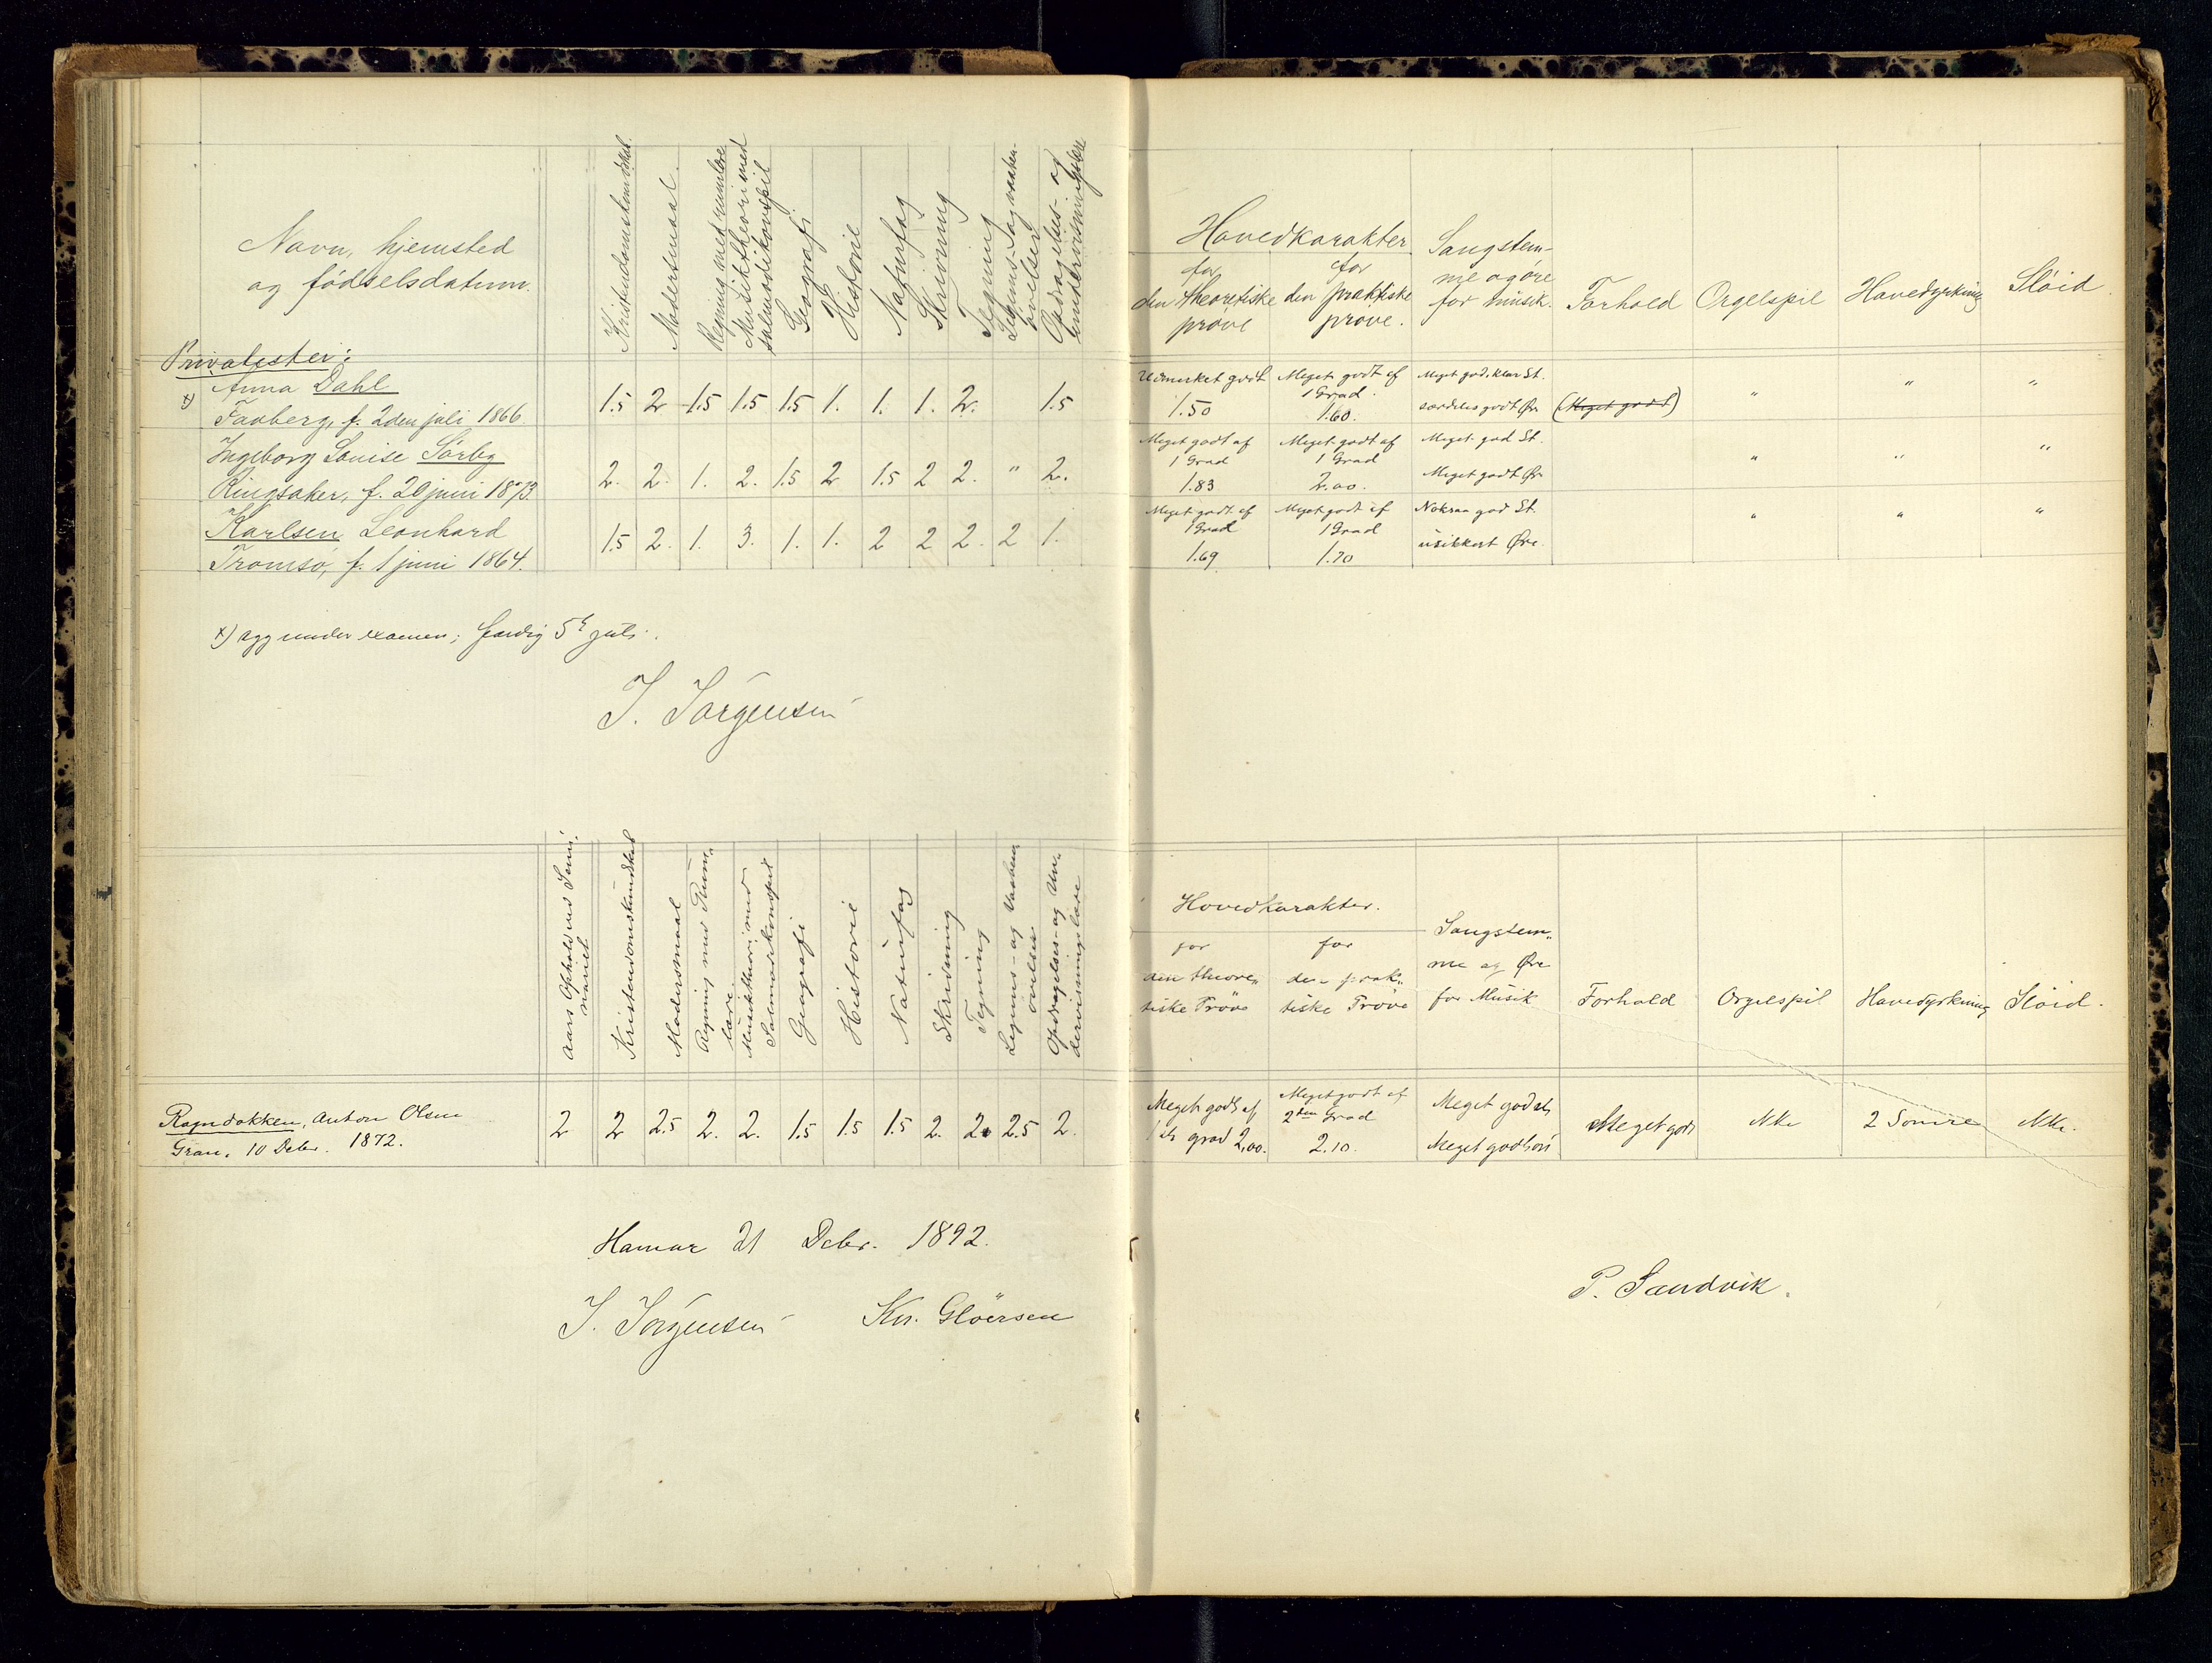 Navn, hjemsted
og fødselsdatum.
Kristendomskundskab.
Modersmaal.
Regning med rumlære
Musiktheori med
salmodikonspil
Geografi
Historie
Naturfag
Skrivning
Tegning
Legems- og vaaben-
øvelser
Opdragelses- og
undervisningslære
Hovedkarakter
for
den theoretiske
prøve
for
den praktiske
prøve.
Sangstem-
me og øre
for musik.
Forhold
Orgelspil
Havedyrkning
Sløid.
Privatister:
x) Anna Dahl
Faaberg, f. 2den juli 1866.
1.5 2 1.5 1.5 1.5 1. 1. 1. 2. 1.5
Udmærket godt
1.50
Meget godt af
1 Grad.
1.60.
Meget god, klar St.
særdeles godt Øre
(Meget godt)
" " "
Ingeborg Louise Sørby
Ringsaker, f. 20 juni 1873.
2. 2. 1. 2. 1.5 2 1.5 2 2. " 2.
Meget godt af
1 Grad
1.83
Meget godt af
1 Grad
2.00.
Meget god St.
Meget godt Øre
" " "
Karlsen Leonhard
Tromsø, f. 1 juni 1864.
1.5 2. 1. 3. 1. 1. 2 2 2. 2 1.
Meget godt af
1 Grad
1.69
Meget godt af
1 Grad
1.70
Noksaa god St.
usikkert Øre.
" " "
x) syg under examen; færdig 5te juli.
J. Jørgensen
Aars Ophold ved Semi-
nariet
Kristendomskundskab
Modersmaal
Regning med Rum-
lære.
Musiktheori med
Salmodikonspil
Geografi
Historie
Naturfag
Skrivning
Tegning
Legems- og Vaaben
øvelser
Opdragelses- og Un-
dervisningslære
Hovedkarakter.
for
den theore-
tiske Prøve
for
den prak-
tiske Prøve
Sangstem-
me og Øre
for Musik
Forhold
Orgelspil
Havedyrkning
Sløid.
Rogndokken, Anton Olsen
Gran, 10 Debr. 1872.
2 2 2.5 2. 2. 1.5 1.5 1.5 2. 2. 2.5 2.
Meget godt af
1ste grad 2,00.
Meget godt af
2den Grad
2.10.
Meget god st.
Meget godt øre
Meget godt
Ikke
2 Somre
Ikke.
Hamar 21 Debr. 1892.
J. Jørgensen Kr. Gløersen
P. Sandvik.